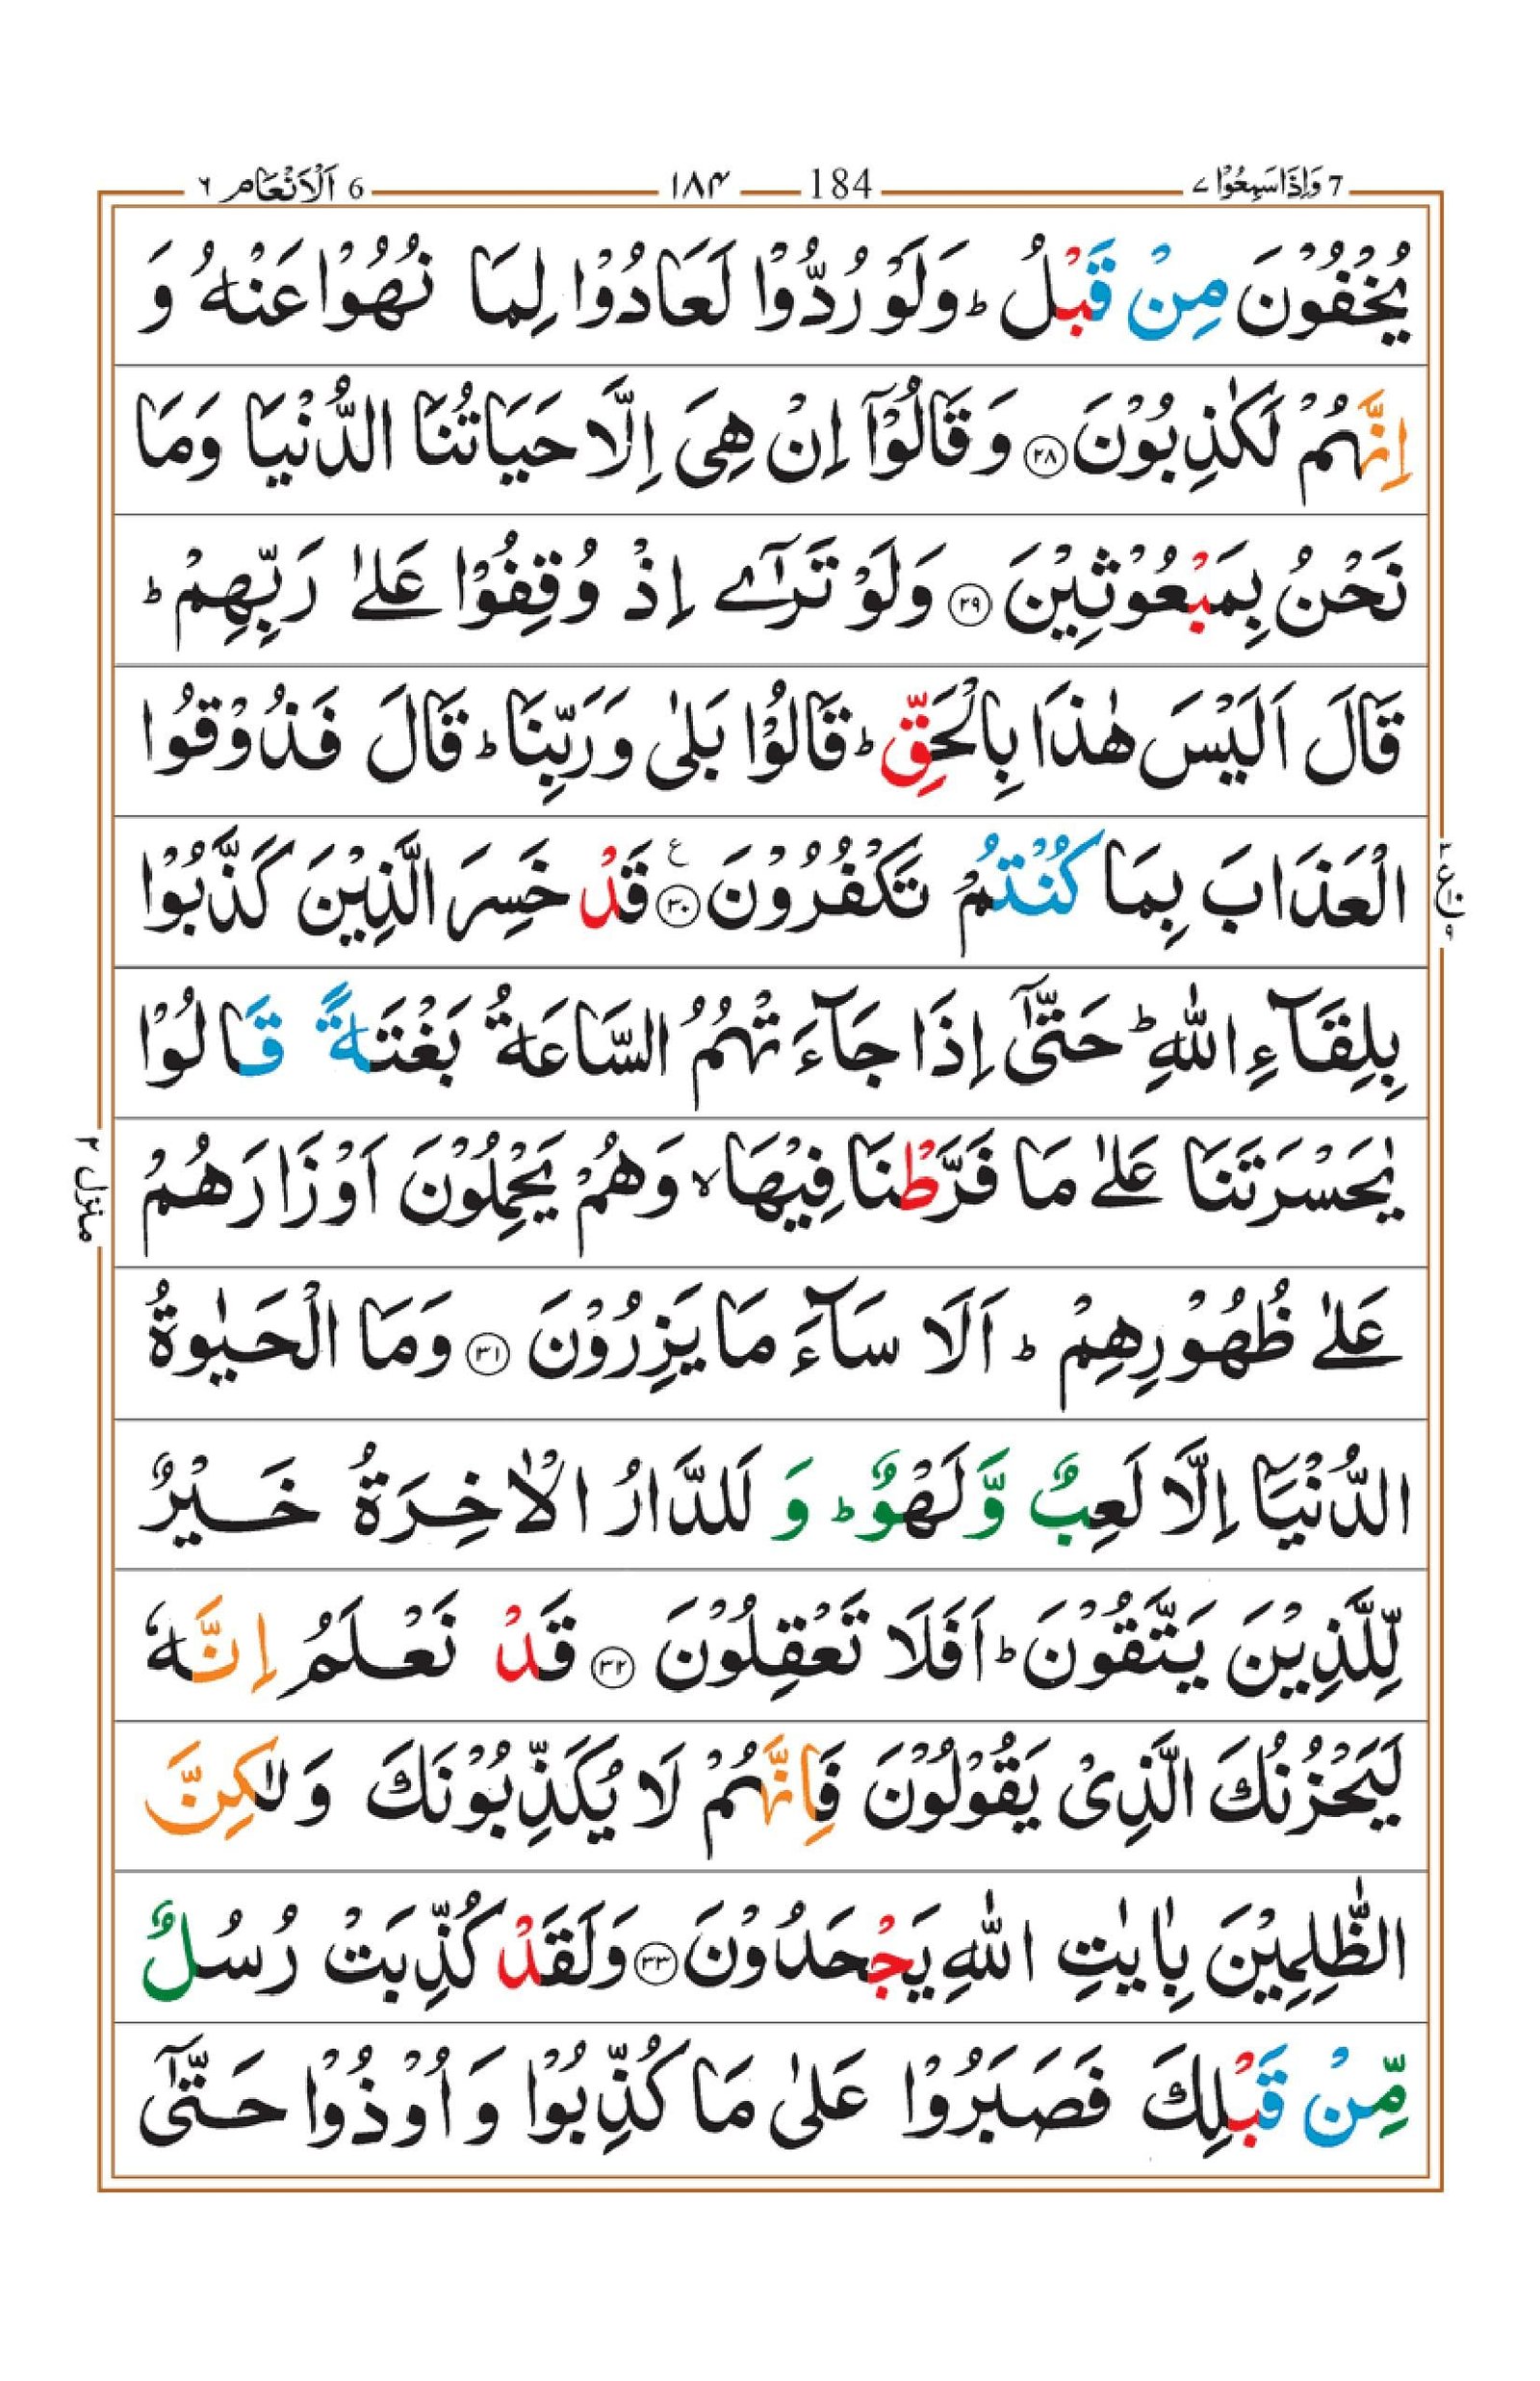 7 وَاِذَاسَمِعُوْا ٧ 184 ١٨٤ 6 اَلْاَنْعَام ٦
يُخْفُوْنَ مِنْ قَبْلُ ؕ وَلَوْ رُدُّوْا لَعَادُوْا لِمَا نُهُوْا عَنْهُ وَ
اِنَّهُمْ لَكٰذِبُوْنَ ۝٢٨ وَقَالُوْۤا اِنْ هِىَ اِلَّا حَيَاتُنَا الدُّنْيَا وَمَا
نَحْنُ بِمَبْعُوْثِيْنَ ۝٢٩ وَلَوْ تَرٰٓى اِذْ وُقِفُوْا عَلٰى رَبِّهِمْ ؕ
قَالَ اَلَيْسَ هٰذَا بِالْحَقِّ ؕ قَالُوْا بَلٰى وَرَبِّنَا ؕ قَالَ فَذُوْقُوا
الْعَذَابَ بِمَا كُنْتُمْ تَكْفُرُوْنَ ۝٣٠ ع قَدْ خَسِرَ الَّذِيْنَ كَذَّبُوْا
٣ ع ١٠ ٩
بِلِقَآءِ اللّٰهِ ؕ حَتّٰٓى اِذَا جَآءَتْهُمُ السَّاعَةُ بَغْتَةً قَالُوْا
يٰحَسْرَتَنَا عَلٰى مَا فَرَّطْنَا فِيْهَا ۙ وَهُمْ يَحْمِلُوْنَ اَوْزَارَهُمْ
منزل ٢
عَلٰى ظُهُوْرِهِمْ ؕ اَلَا سَآءَ مَا يَزِرُوْنَ ۝٣١ وَمَا الْحَيٰوةُ
الدُّنْيَاۤ اِلَّا لَعِبٌ وَّلَهْوٌ ؕ وَ لَلدَّارُ الْاٰخِرَةُ خَيْرٌ
لِّلَّذِيْنَ يَتَّقُوْنَ ؕ اَفَلَا تَعْقِلُوْنَ ۝٣٢ قَدْ نَعْلَمُ اِنَّهٗ
لَيَحْزُنُكَ الَّذِىْ يَقُوْلُوْنَ فَاِنَّهُمْ لَا يُكَذِّبُوْنَكَ وَلٰكِنَّ
الظّٰلِمِيْنَ بِاٰيٰتِ اللّٰهِ يَجْحَدُوْنَ ۝٣٣ وَلَقَدْ كُذِّبَتْ رُسُلٌ
مِّنْ قَبْلِكَ فَصَبَرُوْا عَلٰى مَا كُذِّبُوْا وَاُوْذُوْا حَتّٰٓى